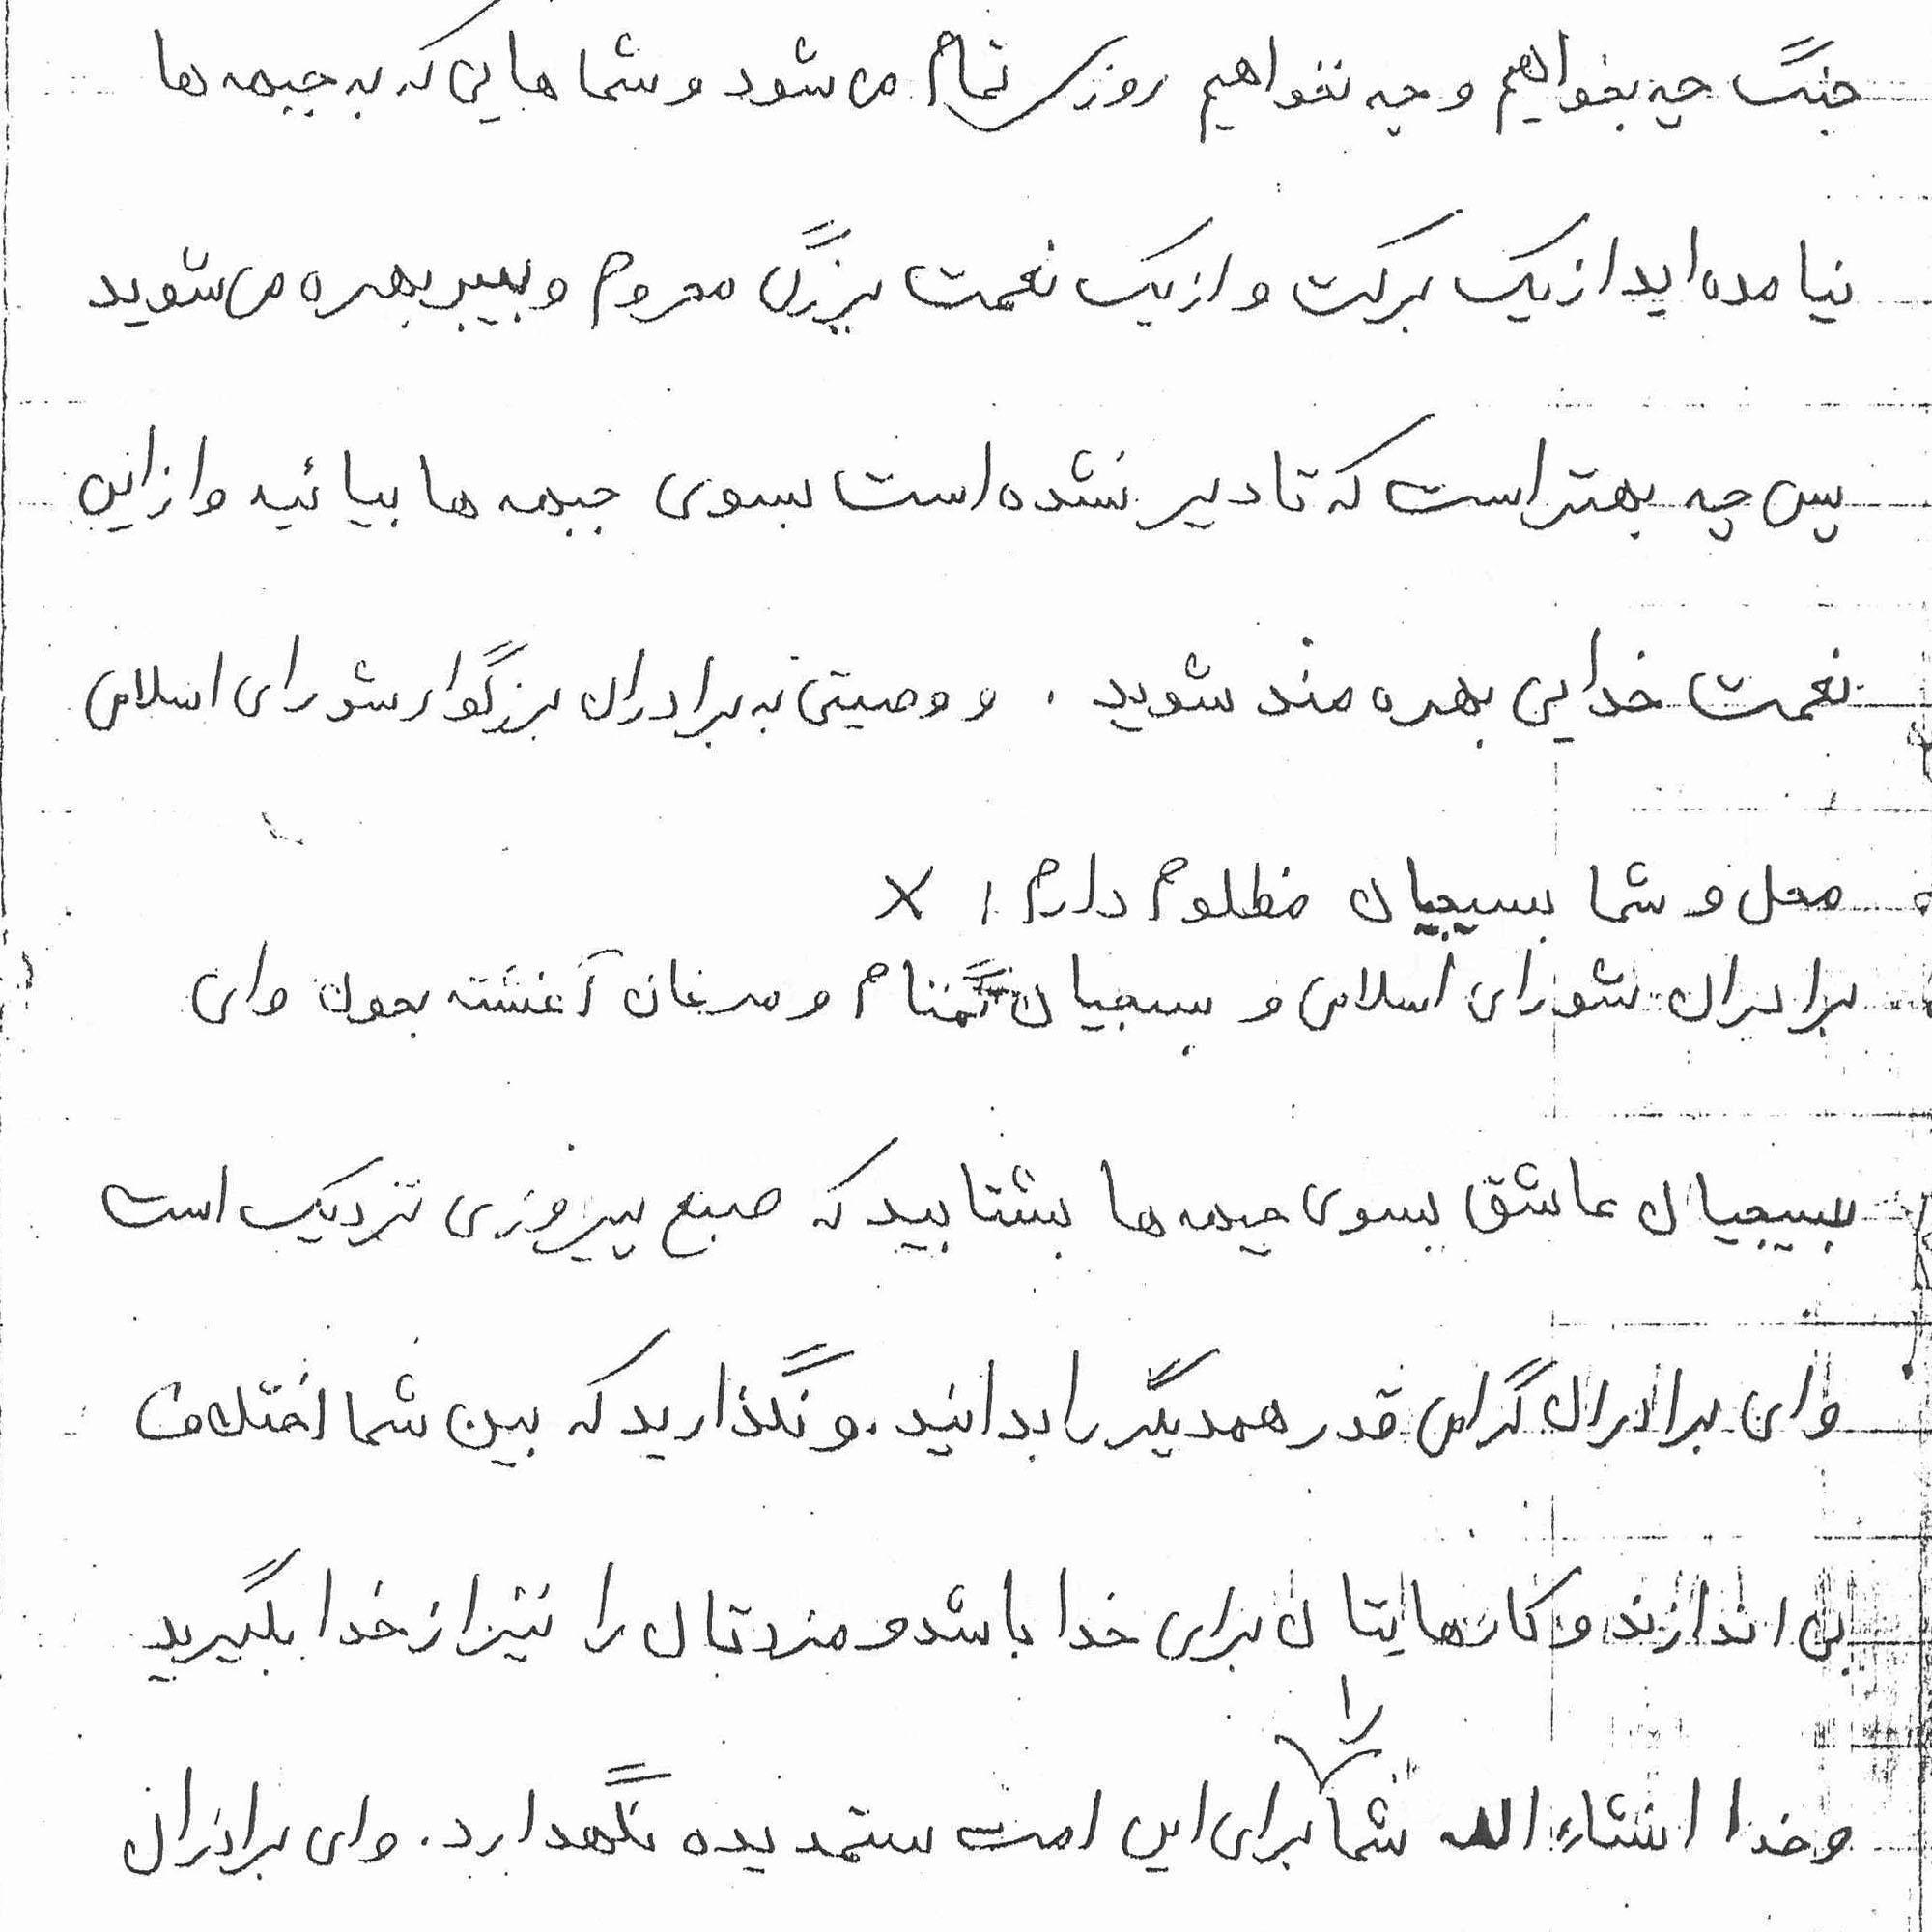 جنگ چه بخواهیم و چه نخواهیم روزی تمام می شود و شما هایی که به جبهه ها
نیامده اید از یک برکت و از یک نعمت بزرگ محروم و بی بهره می شوید
پس چه بهتر است که تا دیر نشده است بسوی جبهه ها بیائید و از این
نعمت خدایی بهره مند شوید . و وصیتی به برادران بزرگوار شورای اسلامی
محل و شما بسیجیان مظلوم دارم ! X
برادران شورای اسلامی و بسیجیان گمنام و مرغان آغشته بخون وای
بسیجیان عاشق بسوی جبهه ها بشتابید که صبح پیروزی نزدیک است
وای برادران گرامی قدر همدیگر را بدانید . و نگذارید که بین شما اختلاف
بی اندازند و کارهایتان برای خدا باشد و مزدتان را نیز از خدا بگیرید
و خدا انشاء الله شما را برای این امت ستمدیده نگهدارد . وای برادران